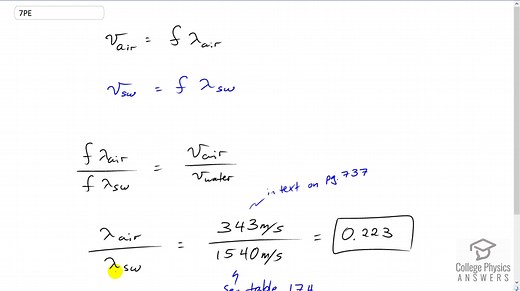 7PE
v_air = f λ_air
v_sw = f λ_sw
f λ_air / f λ_sw = v_air / v_water
in text on pg. 737
λ_air / λ_sw = 343 m/s / 1540 m/s = 0.223
College Physics
ANSWERS